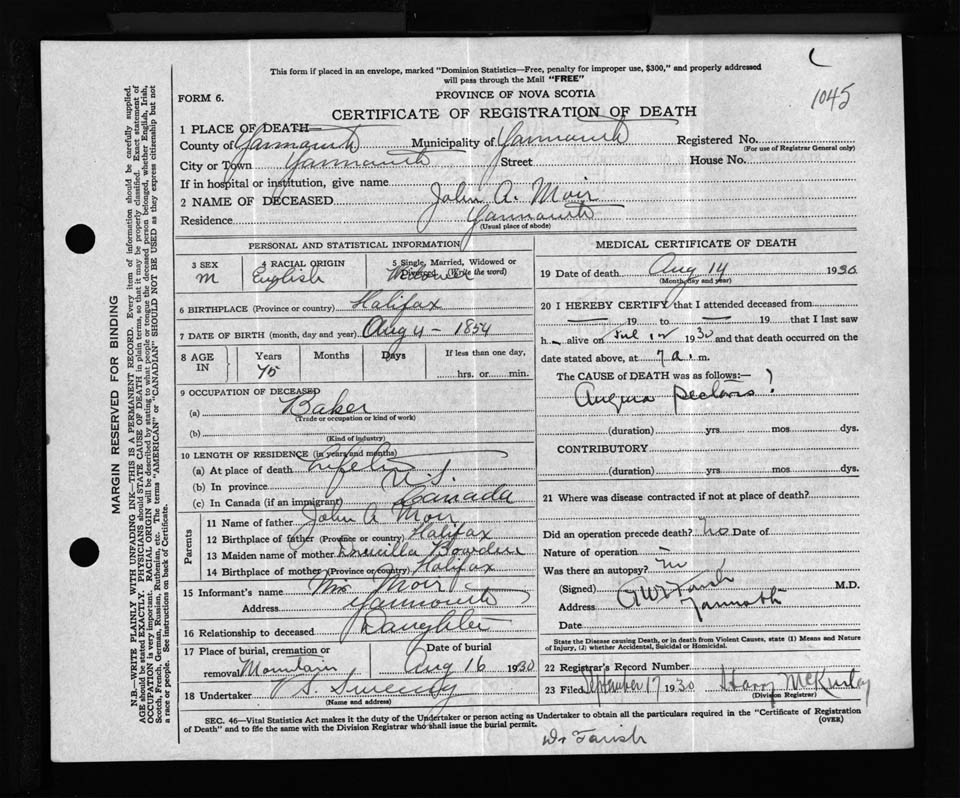 This form if placed in an envelope, marked "Dominion Statistics—Free, penalty for improper use, $300," and properly addressed
will pass through the Mail "FREE"
1045
FORM 6.
PROVINCE OF NOVA SCOTIA
CERTIFICATE OF REGISTRATION OF DEATH
1 PLACE OF DEATH—
County of Yarmouth Municipality of Yarmouth Registered No.
(For use of Registrar General only)
City or Town Yarmouth Street House No.
If in hospital or institution, give name
2 NAME OF DECEASED John A. Moir
Residence Yarmouth
(Usual place of abode)
PERSONAL AND STATISTICAL INFORMATION
3 SEX 4 RACIAL ORIGIN 5 Single, Married, Widowed or
Divorced (Write the word)
M English
6 BIRTHPLACE (Province or country) Halifax
7 DATE OF BIRTH (month, day and year) Aug 4 - 1854
8 AGE IN Years Months Days If less than one day,
75 hrs. or min.
9 OCCUPATION OF DECEASED
(a) Baker
(Trade or occupation or kind of work)
(b)
(Kind of industry)
10 LENGTH OF RESIDENCE (in years and months)
(a) At place of death
(b) In province N.S.
(c) In Canada (if an immigrant) Canada
Parents
11 Name of father John A Moir
12 Birthplace of father (Province or country) Halifax
13 Maiden name of mother Drucilla Bowden
14 Birthplace of mother (Province or country) Halifax
15 Informant's name Mrs Moir
Address Yarmouth
16 Relationship to deceased Daughter
17 Place of burial, cremation or removal Mountain
Date of burial
Aug 16 1930
18 Undertaker V S. Sweeny
(Name and address)
MEDICAL CERTIFICATE OF DEATH
19 Date of death Aug 14 1930.
(Month, day and year)
20 I HEREBY CERTIFY that I attended deceased from
— 19 to — 19 that I last saw
h alive on 1930 and that death occurred on the
date stated above, at 7 a. m.
The CAUSE of DEATH was as follows:—
Angina Pectoris ?
(duration) yrs. mos dys.
CONTRIBUTORY
(duration) yrs. mos. dys.
21 Where was disease contracted if not at place of death?
Did an operation precede death? no Date of
Nature of operation
Was there an autopsy? no
(Signed) Farish M.D.
Address Yarmouth
Date
State the Disease causing Death, or in death from Violent Causes, state (1) Means and Nature
of Injury, (2) whether Accidental, Suicidal or Homicidal.
22 Registrar's Record Number
23 Filed September 17 1930 Harry McKinlay
(Division Registrar)
SEC. 46—Vital Statistics Act makes it the duty of the Undertaker or person acting as Undertaker to obtain all the particulars required in the "Certificate of Registration
of Death" and to file the same with the Division Registrar who shall issue the burial permit.
(OVER)
Dr Farish
MARGIN RESERVED FOR BINDING
N.B.—WRITE PLAINLY WITH UNFADING INK—THIS IS A PERMANENT RECORD. Every item of information should be carefully supplied.
AGE should be stated EXACTLY. PHYSICIANS should STATE CAUSE OF DEATH in plain terms, so that it may be properly classified. Exact statement of
OCCUPATION is very important. RACIAL ORIGIN will be described by stating to what people or tongue the deceased person belonged, whether English, Irish,
Scotch, French, German, Russian, Ruthenian, etc. The terms "AMERICAN" or "CANADIAN" SHOULD NOT BE USED as they express citizenship but not
a race or people. See instructions on back of Certificate.